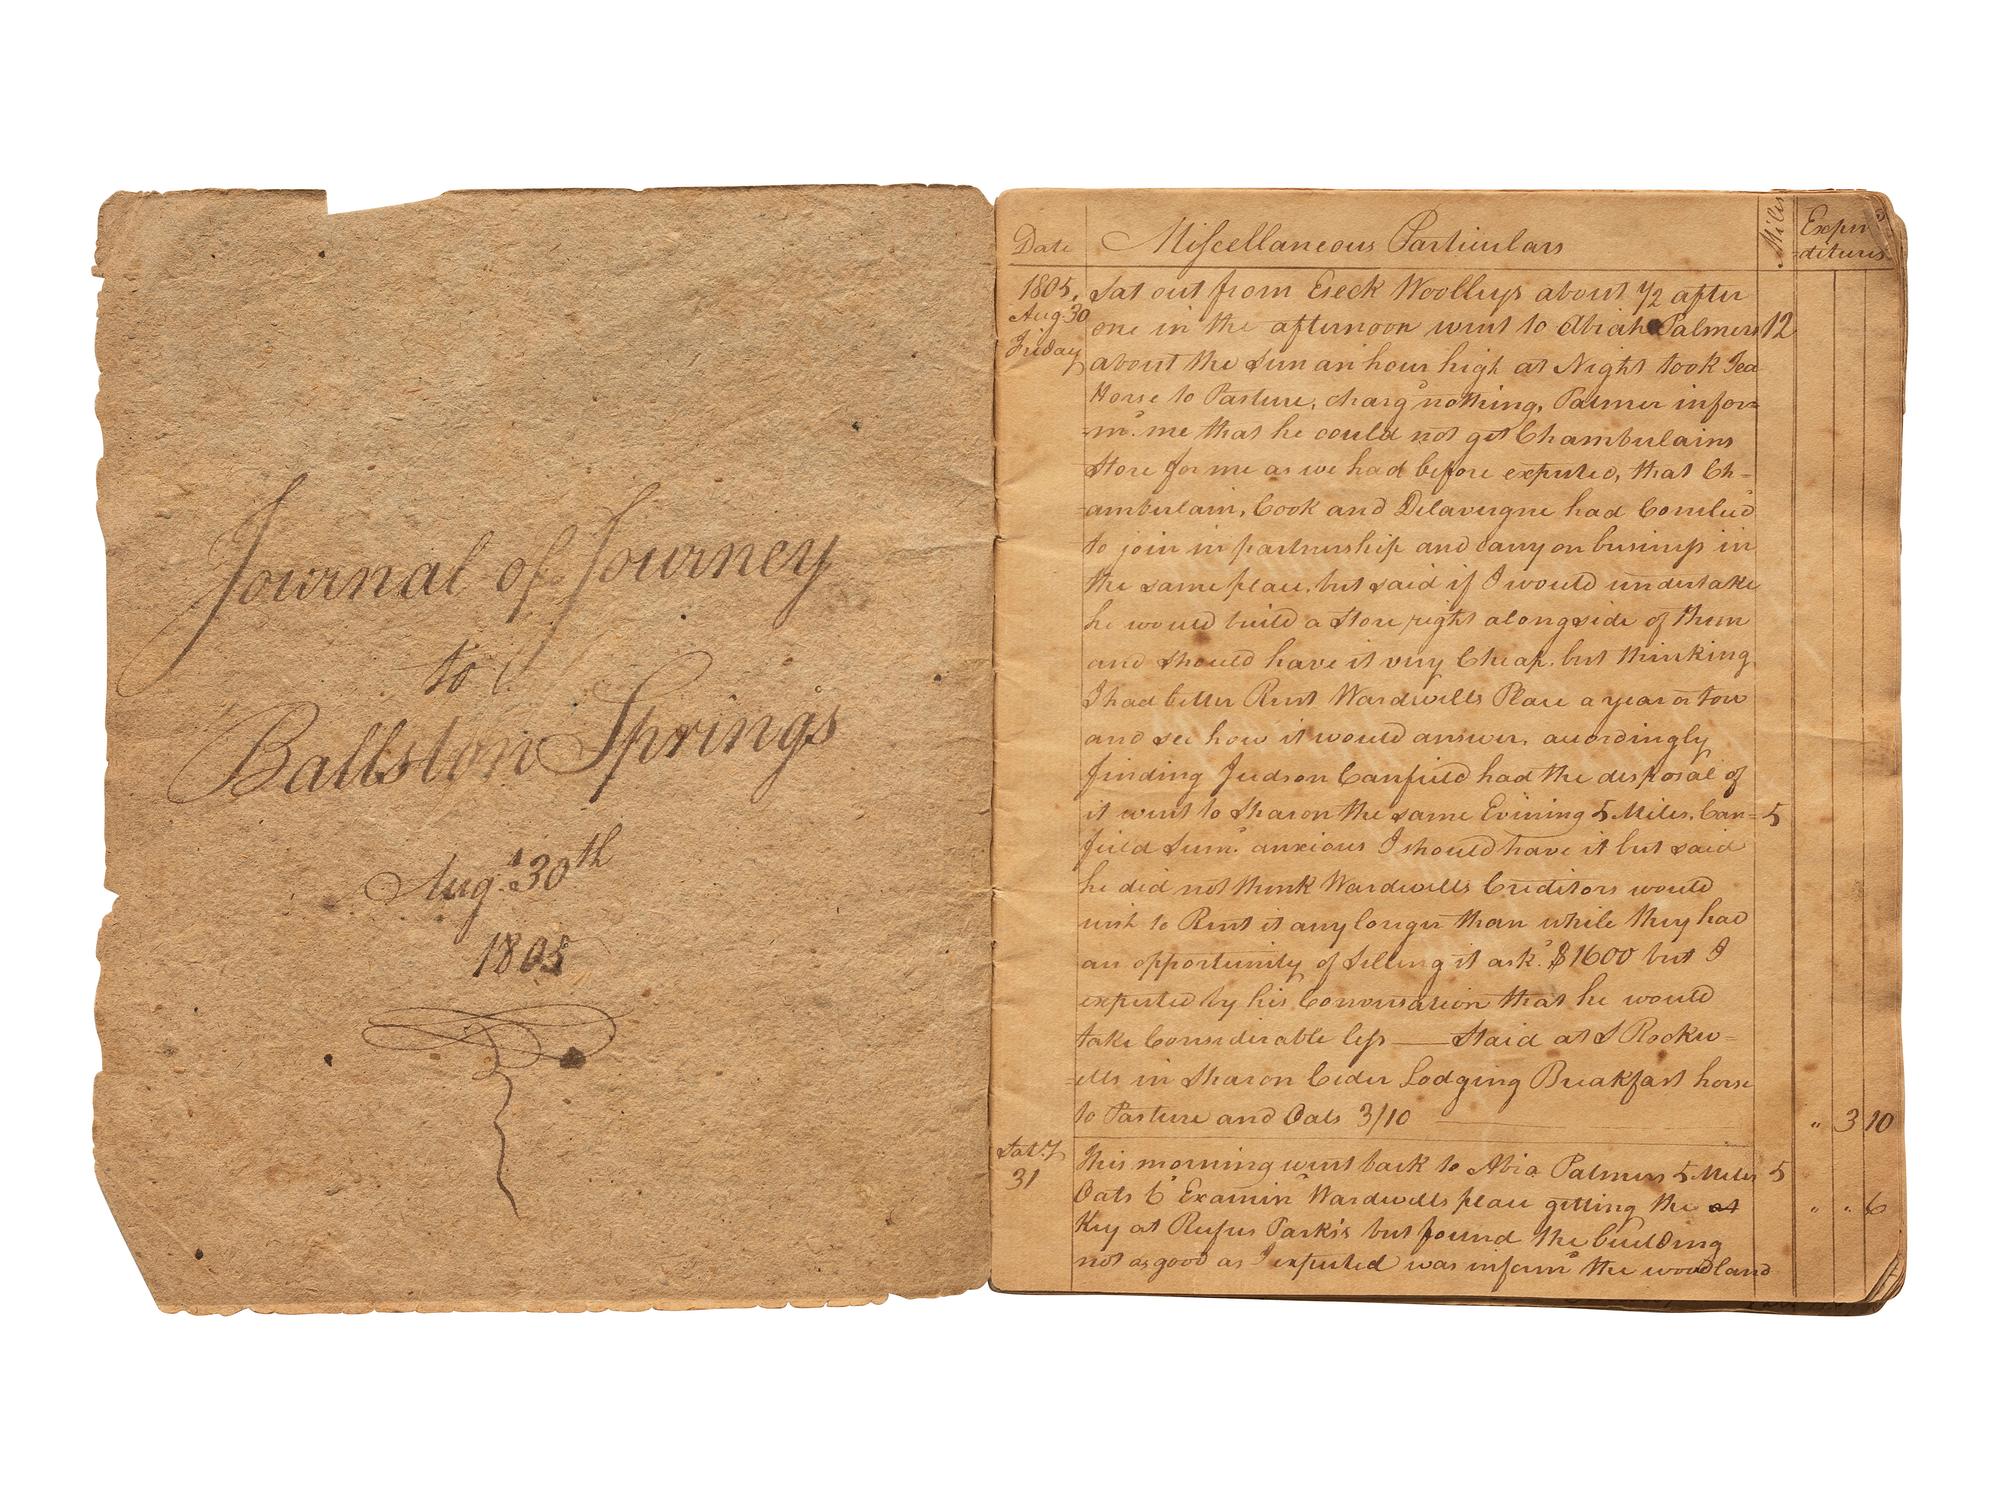 Journal of Journey
to
Ballston Springs
Aug.t 30th
1805
Date
Miscellaneous Particulars
Miles
Expen
ditures
1805,
Aug 30
Friday
Sat out from Eseck Woolleys about 1/2 after
one in the afternoon went to Abiah Palmers 12
about the Sun an hour high at Night took Tea
Horse to Pasture, charg'd nothing, Palmer infor=
=m.d me that he could not get Chamberlains
Store for me as we had before expected, that Ch=
=amberlain, Cook and Delavergne had Conclud'd
to join in partnership and carry on business in
the same place, but said if I would undertake
he would build a Store right alongside of them
and should have it very Cheap, but thinking
I had better Rent Wardwells Place a year or tow
and see how it would answer, accordingly
finding Judson Canfield had the disposal of
it went to Sharon the same Evening 5 Miles. Can= 5
field Seem.d anxious I should have it but said
he did not think Wardwells Creditors would
wish to Rent it any longer than while they had
an opportunity of Selling it ask.d $1600 but I
expected by his Conversation that he would
take Considerable less —— Staid at S Rockw=
=ells in Sharon Cider Lodging Breakfast horse
to Pasture and Oats 3/10 —— " 3 10
Sat.y
31
This morning went back to Abia Palmers 5 Miles 5
Oats 6d Examin'd Wardwells place getting the at " " 6
Key at Rufus Park's but found the building
not as good as I expected was inform'd the woodland